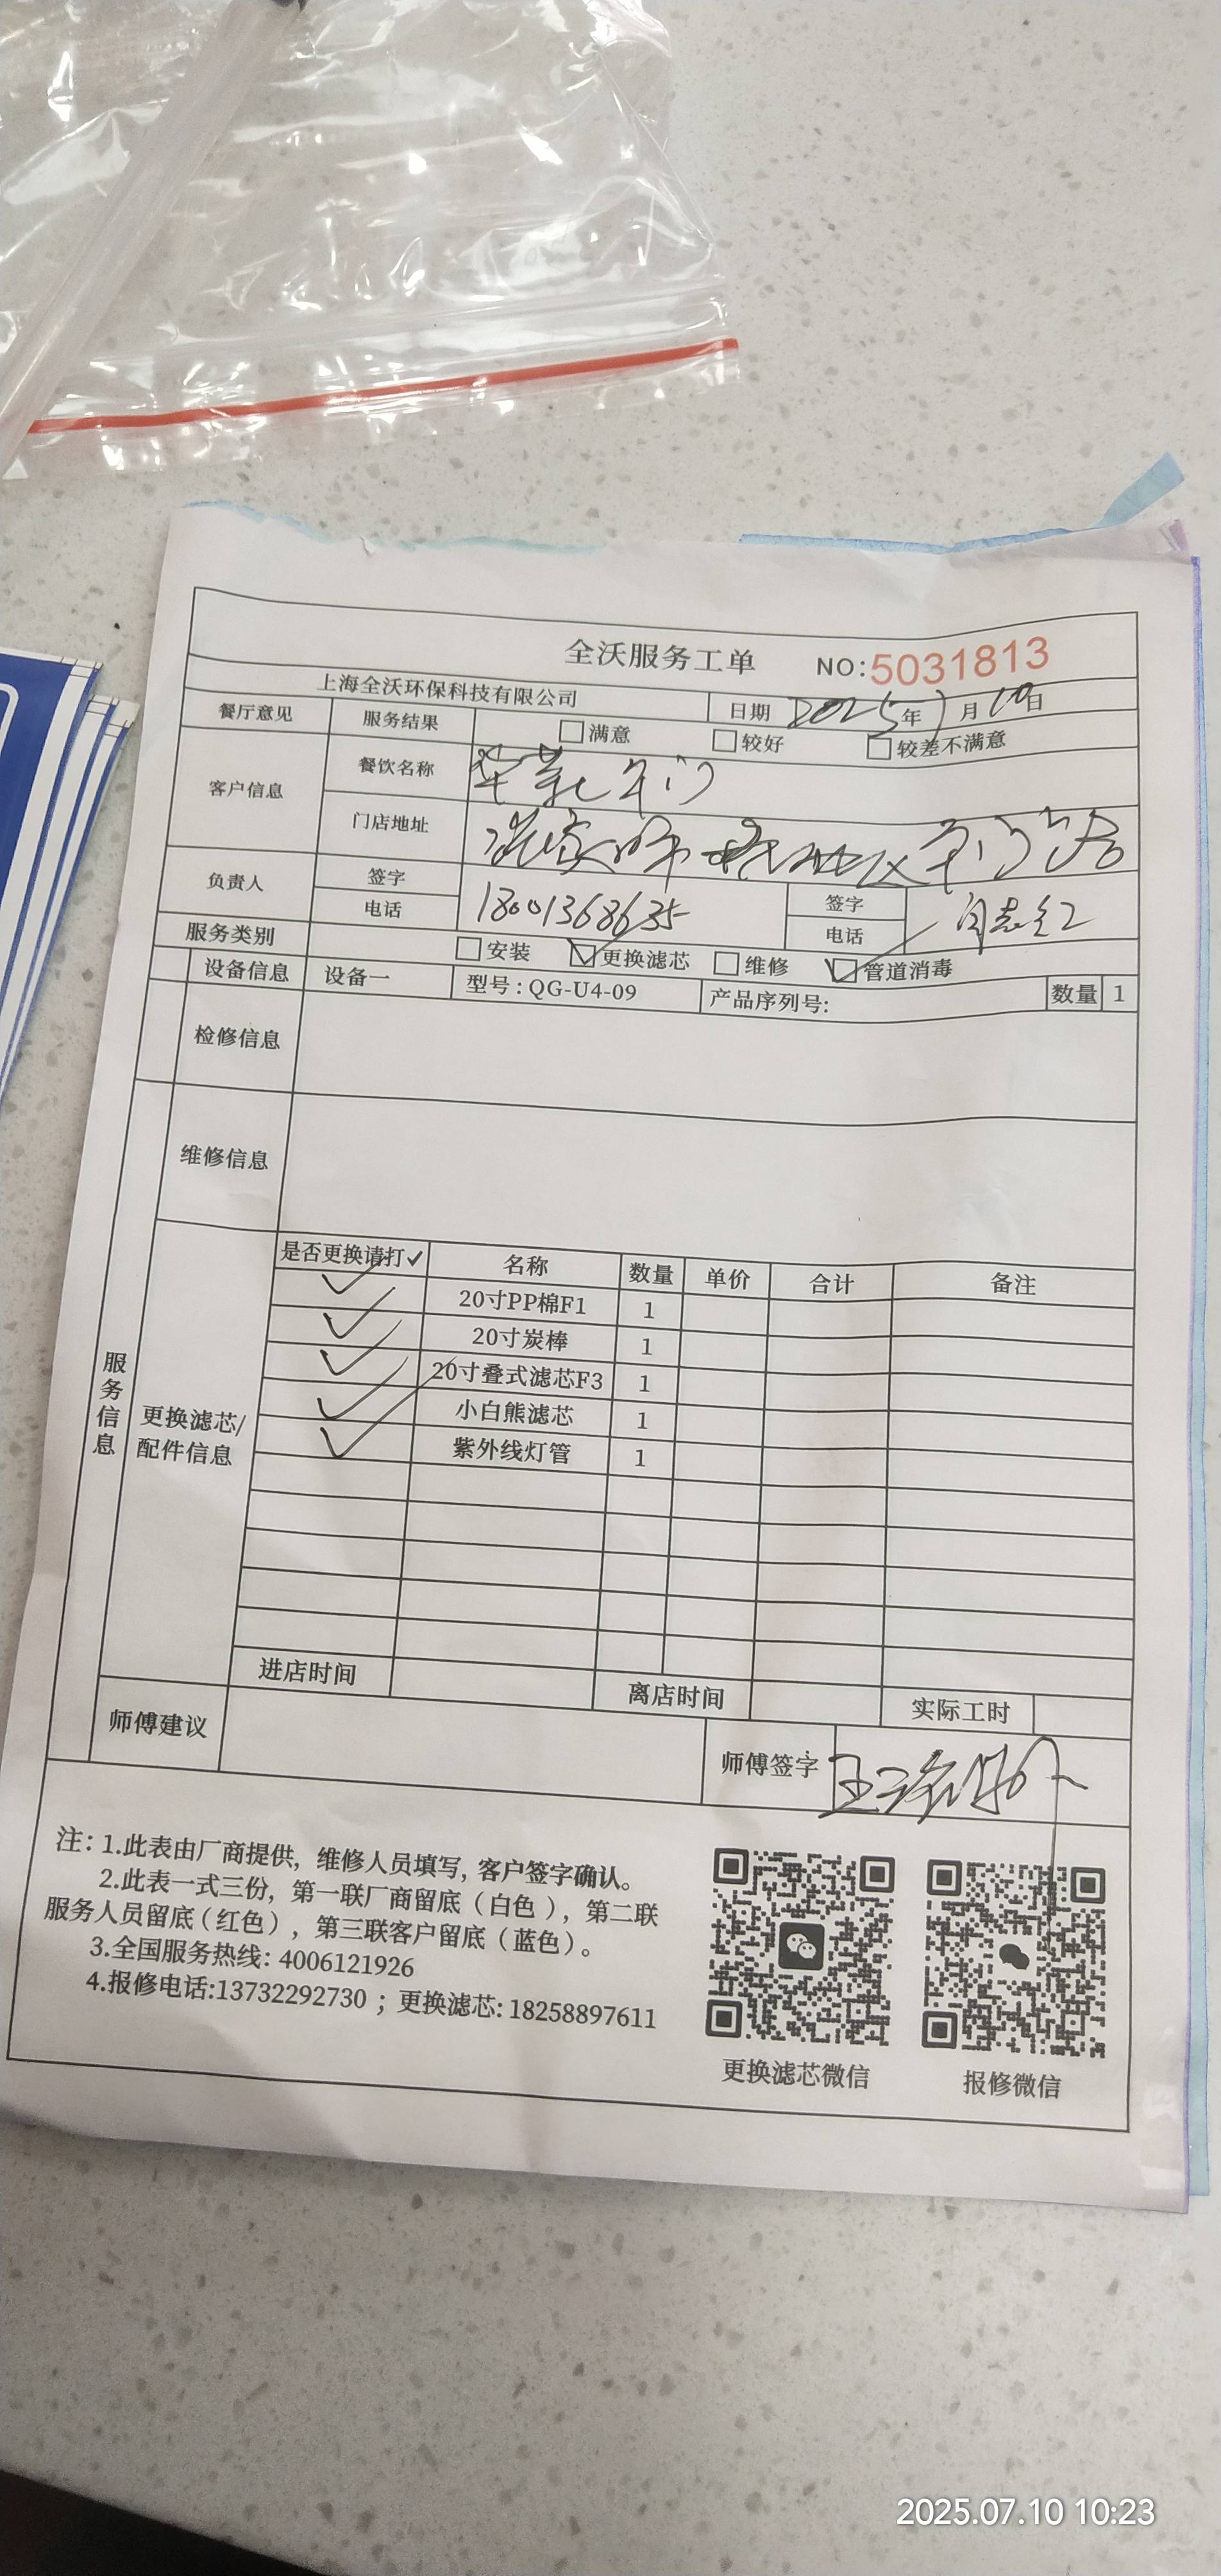 全沃服务工单 NO:5031813
上海全沃环保科技有限公司 日期 2025年7月10日
餐厅意见 服务结果 □满意 □较好 □较差不满意
客户信息 餐饮名称
门店地址
负责人 签字 签字
电话 18001368635 电话
服务类别 □安装 ☑更换滤芯 □维修 ☑管道消毒
设备信息 设备一 型号:QG-U4-09 产品序列号: 数量 1
检修信息
维修信息
服务信息
更换滤芯/
配件信息
是否更换请打✓ 名称 数量 单价 合计 备注
✓ 20寸PP棉F1 1
✓ 20寸炭棒 1
✓ 20寸叠式滤芯F3 1
✓ 小白熊滤芯 1
✓ 紫外线灯管 1
进店时间 离店时间 实际工时
师傅建议 师傅签字
注:1.此表由厂商提供,维修人员填写,客户签字确认。
2.此表一式三份,第一联厂商留底(白色),第二联
服务人员留底(红色),第三联客户留底(蓝色)。
3.全国服务热线:4006121926
4.报修电话:13732292730;更换滤芯:18258897611
更换滤芯微信 报修微信
2025.07.10 10:23